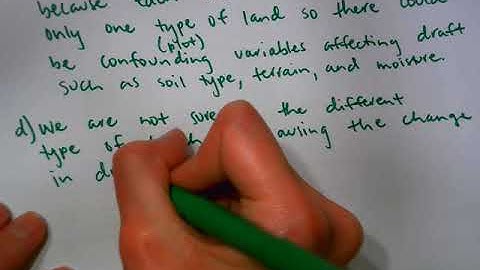 because
only one type of land so there could
(plot)
be confounding variables affecting draft
such as soil type, terrain, and moisture.
d) we are not sure the different
type of causing the change
in